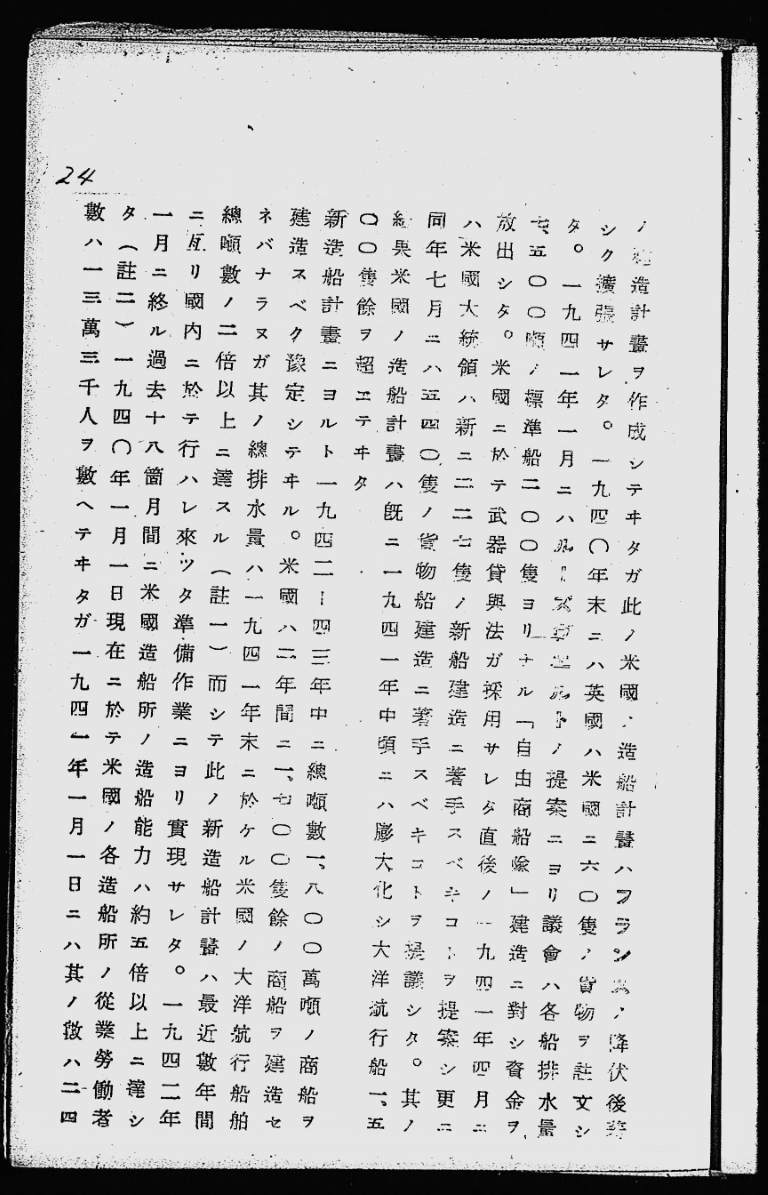 24
ノ建造計畫ヲ作成シテヰタガ此ノ米國ノ造船計畫ハフランスノ降伏後著
シク擴張サレタ。一九四〇年末ニハ英國ハ米國ニ六〇隻ノ貨物ヲ註文シ
タ。一九四一年一月ニハルーズヴエルトノ提案ニヨリ議會ハ各船排水量
七、五〇〇噸ノ標準船二〇〇隻ヨリナル「自由商船隊」建造ニ對シ資金ヲ
放出シタ。米國ニ於テ武器貸與法ガ採用サレタ直後ノ一九四一年四月ニ
ハ米國大統領ハ新ニ二二七隻ノ新船建造ニ著手スベキコトヲ提案シ更ニ
同年七月ニハ五四〇隻ノ貨物船建造ニ著手スベキコトヲ提議シタ。其ノ
結果米國ノ造船計畫ハ既ニ一九四一年中頃ニハ厖大化シ大洋航行船一、五
〇〇隻餘ヲ超エテヰタ
新造船計畫ニヨルト一九四二ー四三年中ニ總噸數一、八〇〇萬噸ノ商船ヲ
建造スベク豫定シテヰル。米國ハ二年間ニ一、七〇〇隻餘ノ商船ヲ建造セ
ネバナラヌガ其ノ總排水量ハ一九四一年末ニ於ケル米國ノ大洋航行船舶
總噸數ノ二倍以上ニ達スル(註一)而シテ此ノ新造船計畫ハ最近數年間
ニ亙リ國内ニ於テ行ハレ來ツタ準備作業ニヨリ實現サレタ。一九四二年
一月ニ終ル過去十八箇月間ニ米國造船所ノ造船能力ハ約五倍以上ニ達シ
タ(註二)一九四〇年一月一日現在ニ於テ米國ノ各造船所ノ從業勞働者
數ハ一三萬三千人ヲ數ヘテヰタガ一九四一年一月一日ニハ其ノ數ハ二四